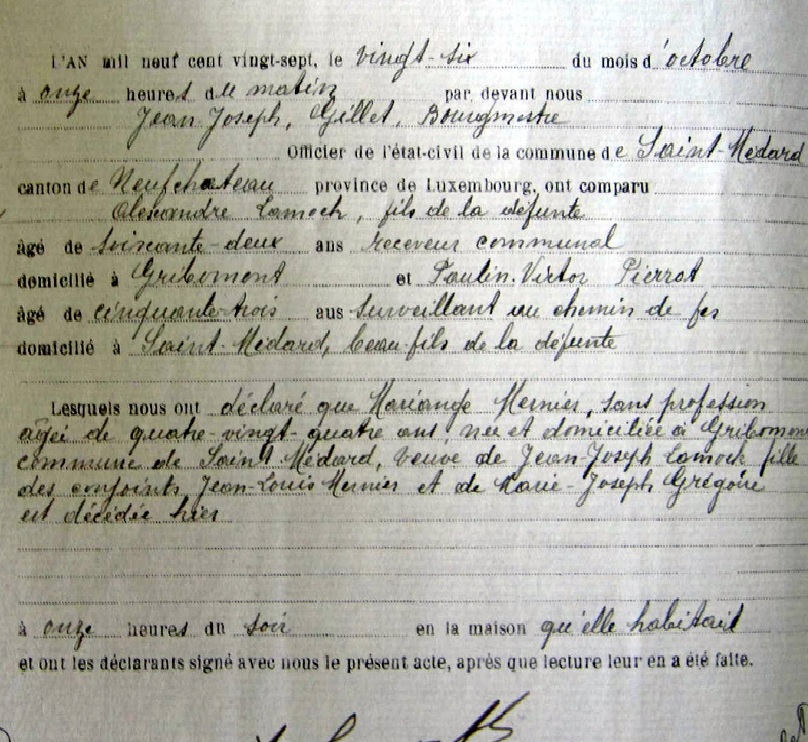 L'AN mil neuf cent vingt-sept, le vingt-six du mois d'octobre
à onze heures du matin par devant nous
Jean-Joseph, Gillet, Bourgmestre
Officier de l'état-civil de la commune de Saint-Médard
canton de Neufchateau province de Luxembourg, ont comparu
Alexandre Lamock, fils de la défunte
âgé de soixante-deux ans receveur communal
domicilié à Gribomont et Paulin-Victor Pierrot
âgé de cinquante-trois ans surveillant au chemin de fer
domicilié à Saint-Médard, beau-fils de la défunte
Lesquels nous ont déclaré que Mariange Mernier, sans profession
agée de quatre-vingt-quatre ans, née et domiciliée à Gribomont
commune de Saint Médard, veuve de Jean-Joseph Lamock fille
des conjoints Jean-Louis Mernier et de Marie-Joseph Grégoire
est décédée hier
à onze heures du soir en la maison qu'elle habitait
et ont les déclarants signé avec nous le présent acte, après que lecture leur en a été faite.